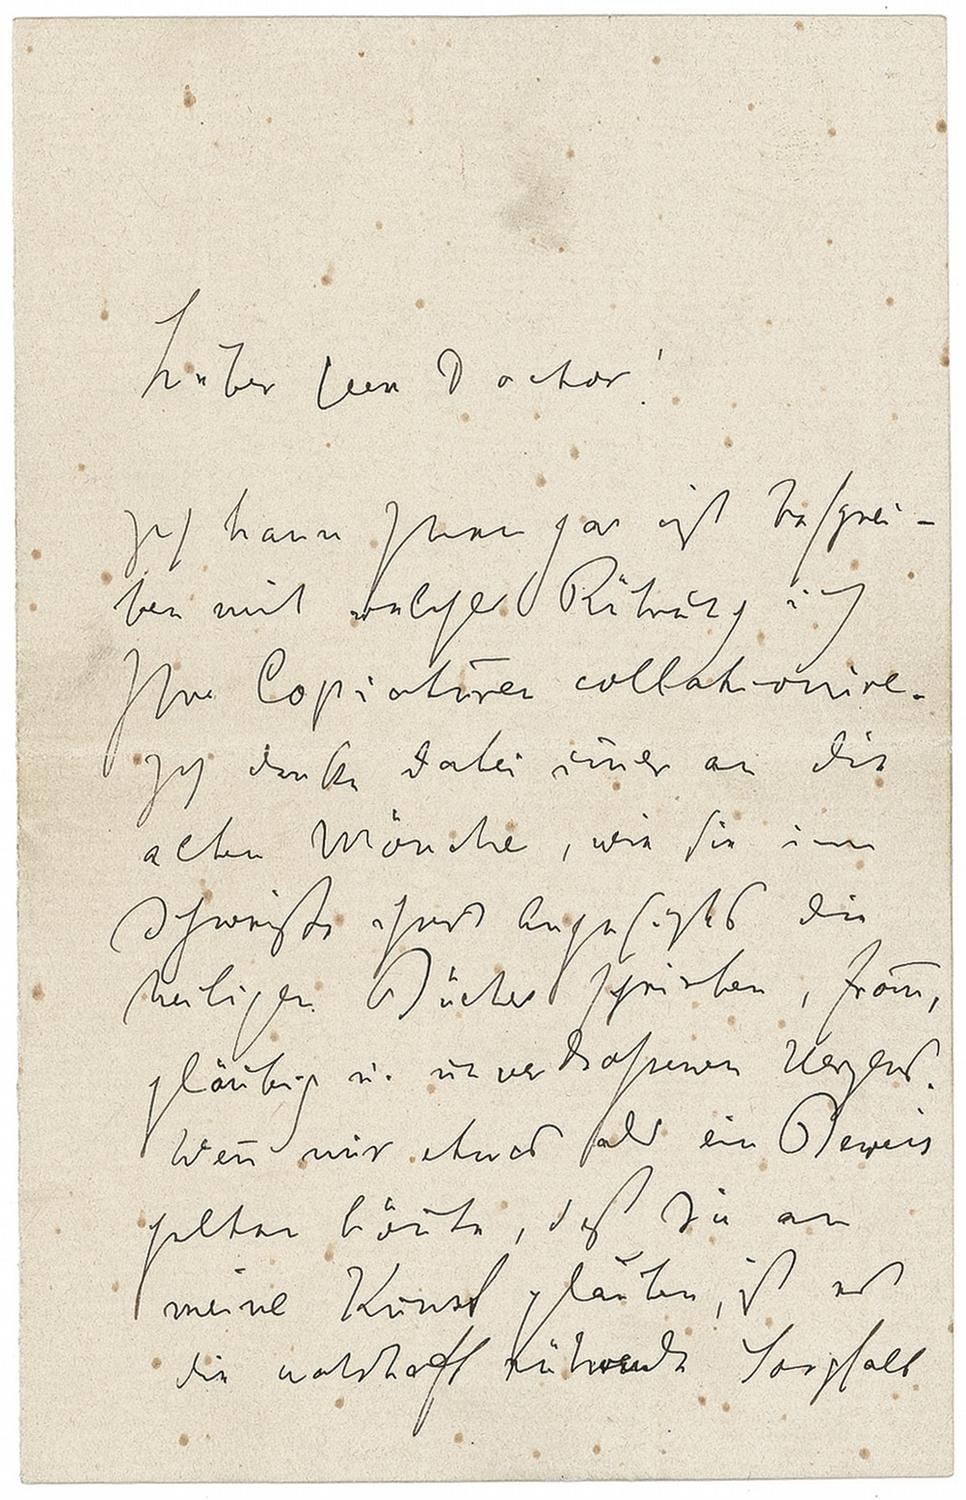 Lieber Herr Doctor!
Ich kann Ihnen gar nicht beschrei-
ben mit welcher Rührung ich
Ihre Copiaturen collationire.
Ich denke dabei im̅er an die
alten Mönche, wie sie im
Schweiße ihres Angesichts die
heiligen Bücher schrieben, from̅,
gläubig u. unverdroßenen Herzens.
Wen̅ mir etwas als ein Beweis
gelten kön̅te, daß Sie an
meine Kunst glauben, ist es
die wahrhaft rührende Sorgfalt